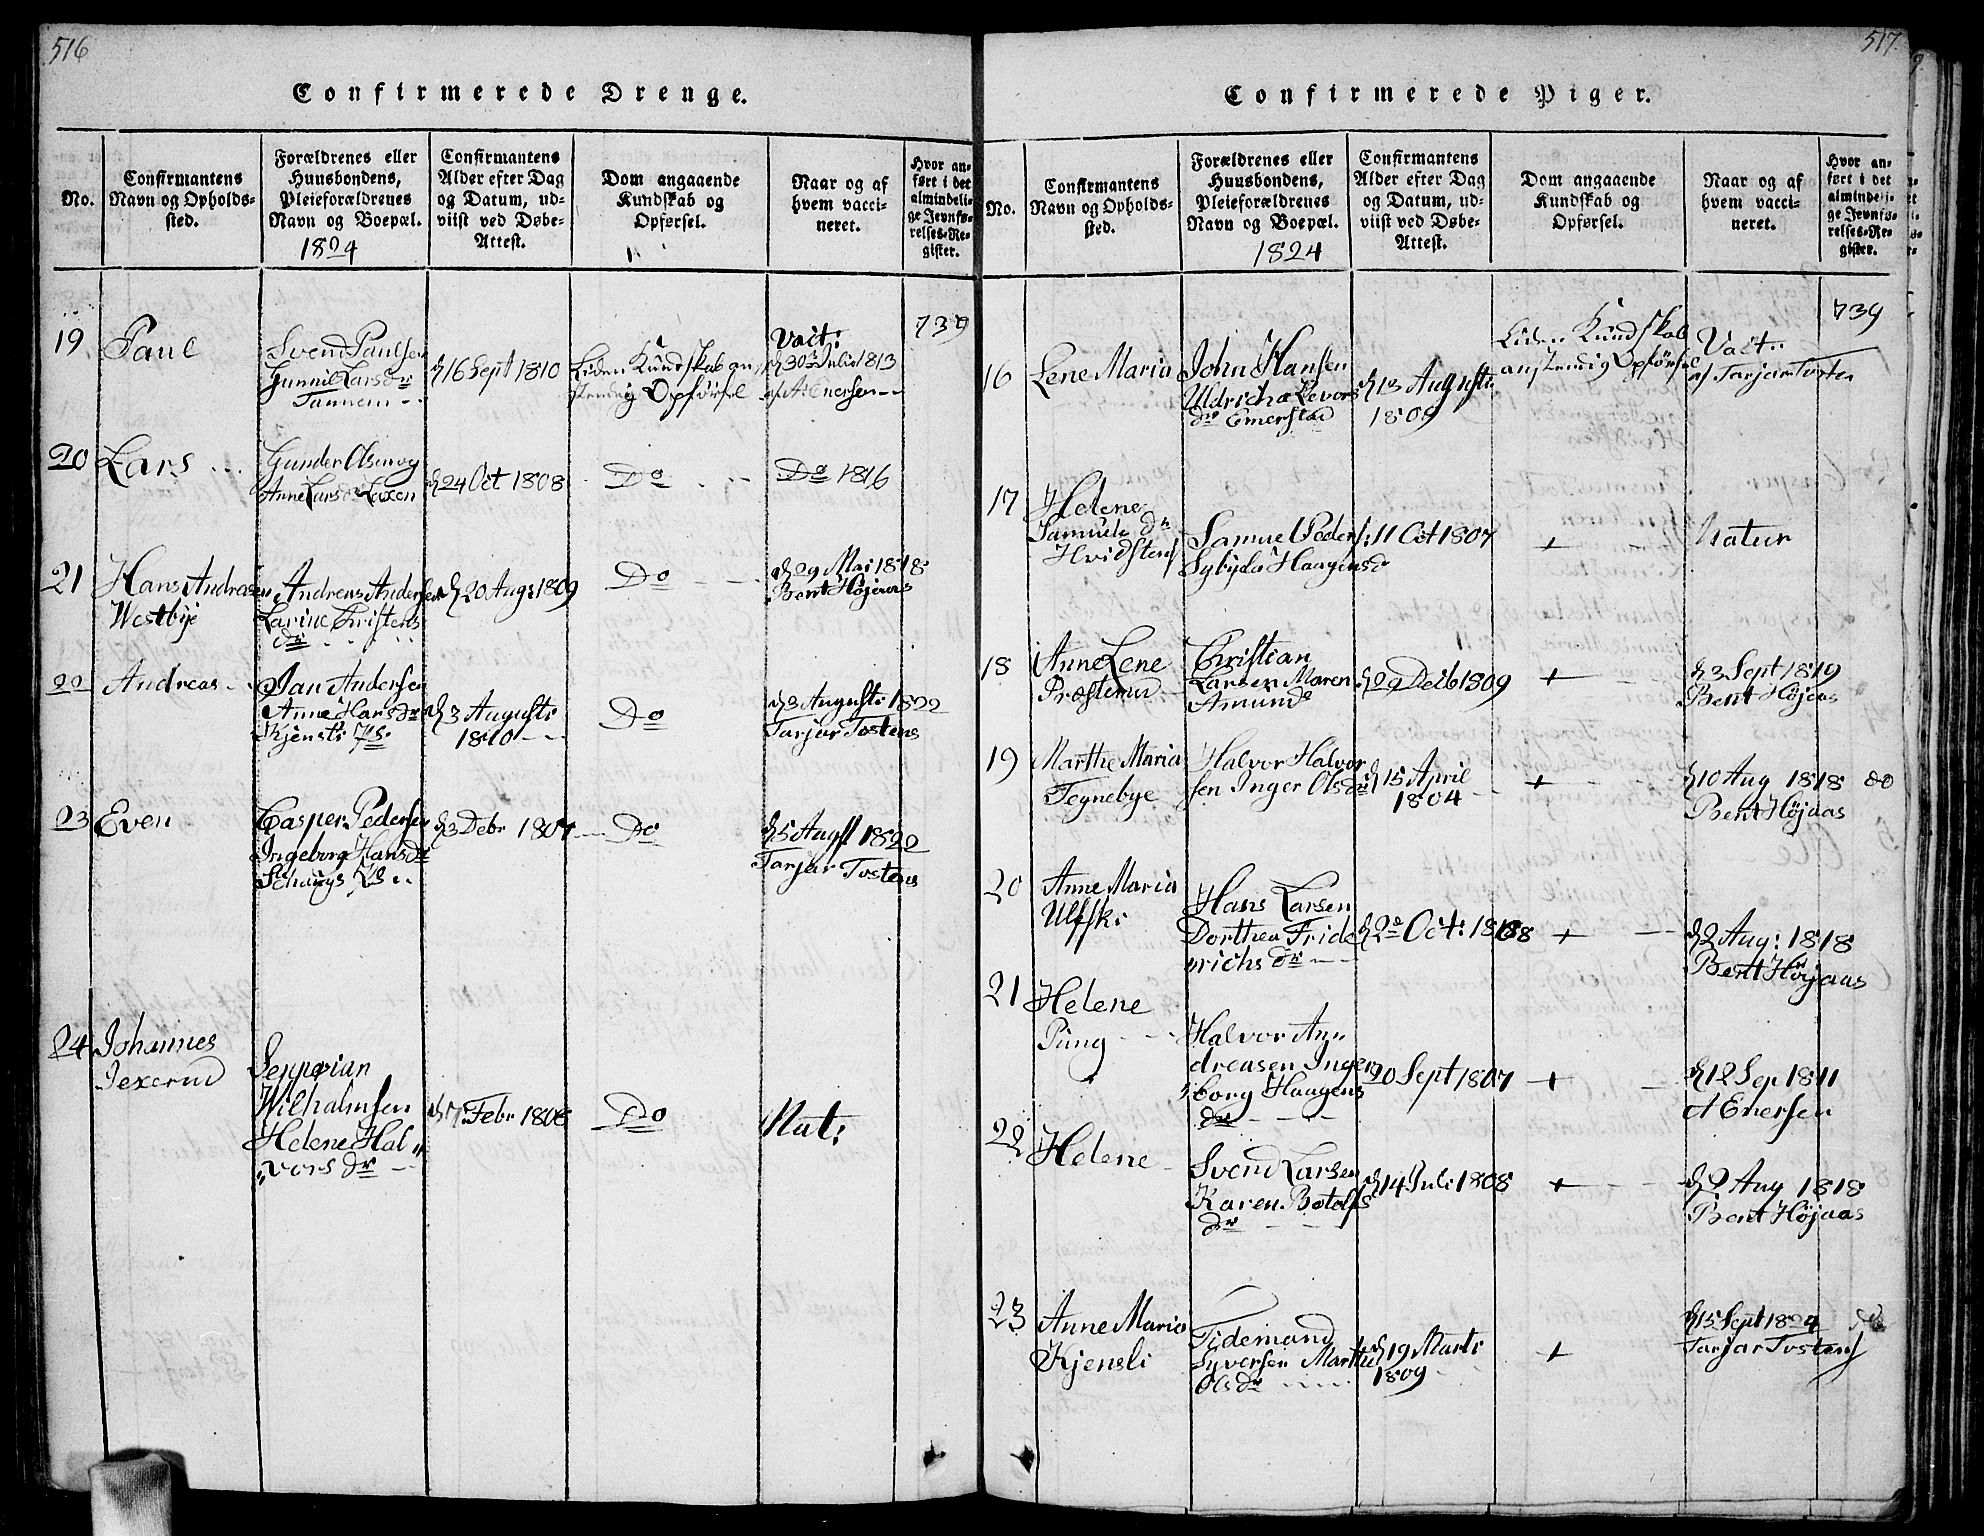 516
Confirmerede Drenge.
No.
Confirmantens
Navn og Opholds-
sted.
Forældrenes eller
Huusbondens,
Pleieforældrenes
Navn og Boepæl.
1824
Confirmantens
Alder efter Dag
og Datum, ud-
viist ved Døbe-
Attest.
Dom angaaende
Kundskab og
Opførsel.
Naar og af
hvem vacci-
neret.
Hvor an-
ført i det
almindeli-
ge Jevnfø-
relses-Re-
gister.
19
Paul
Svend Paulsen
Gunnil Larsdr
Tannem
d 16 Sept 1810
Liden Kundskab an-
stendig Opførsel
Vacit:
d 30te Julii 1813
af A: Enersen
739
20
Lars
Gunder Olsen og
Anne Larsdr Laxen
d 24 Oct 1808
Do
Do 1816
21
Hans Andreas
Westbye
Andreas Andersen
Larine Christens
dr
d 20 Aug: 1809
Do
d 29 Mai 1818
Bent Höjaas
22
Andreas
Jan Andersen
Anne Hansdr
Kjensli
d 3 Augusti
1810
Do
d 3 Augusti 1822
Tarjar Tostens
23
Even
Casper Pedersen
Ingeborg Hansdr
d 3 Debr 1807
Do
d 5 Augst 1822
Tarjar Tostens
24
Johannes
Jexerud
Seppøian
Wilhalmsen
Helene Hal
vors dr
d 17 Febr 1808
Do
Nat:
517
Confirmerede Piger.
No.
Confirmantens
Navn og Opholds-
sted.
Forældrenes eller
Huusbondens,
Pleieforældrenes
Navn og Boepæl.
1824
Confirmantens
Alder efter Dag
og Datum, ud-
viist ved Døbe-
Attest.
Dom angaaende
Kundskab og
Opførsel.
Naar og af
hvem vacci-
neret.
Hvor an-
ført i det
almindeli-
ge Jevnfø-
relses-Re-
gister.
16
Lene Maria
John Hansen
Uldricha Levors
dr Emerstad
d 13 Augusti
1809
Liden Kundskab
anstendig Opførsel
Vacit:
af Tarjar Tosten
739
17
Helene
Samuels dr
Hvidsten
Samuel Peders:
Sybyda Haagensd
11 Oct 1807
+
Natur
18
Anne Lene
Præsterud
Christian
Larsen Maren
Amundd
d 29 Decb 1809
+
d 3 Sept 1819
Bent Höjaas
19
Marthe Maria
Tegnebye
Halvor Halvor
sen Inger Olsdr
d 15 April
1804
+
d 10 Aug 1818
Bent Höjaas
do
20
Anne Maria
Ulfsk:
Hans Larsen
Dorthea Fride
richs dr
d 2 Oct: 1808
+
d 2 Aug: 1818
Bent Höjaas
21
Helene
Pung
Halvor An
dreasen Inge
borg Haagens
dr
20 Sept 1807
+
d 12 Sep 1811
A Enersen
22
Helene
Svend Larsen
Karen Botolfs
dr
d 14 Juli 1808
+
d 2 Aug 1818
Bent Höjaas
23
Anne Maria
Kjensli
Tidemand
Syversen Marthe
Olsdr
d 19 Marti
1809
+
d 15 Sept 1824
Tarjar Tostens
do